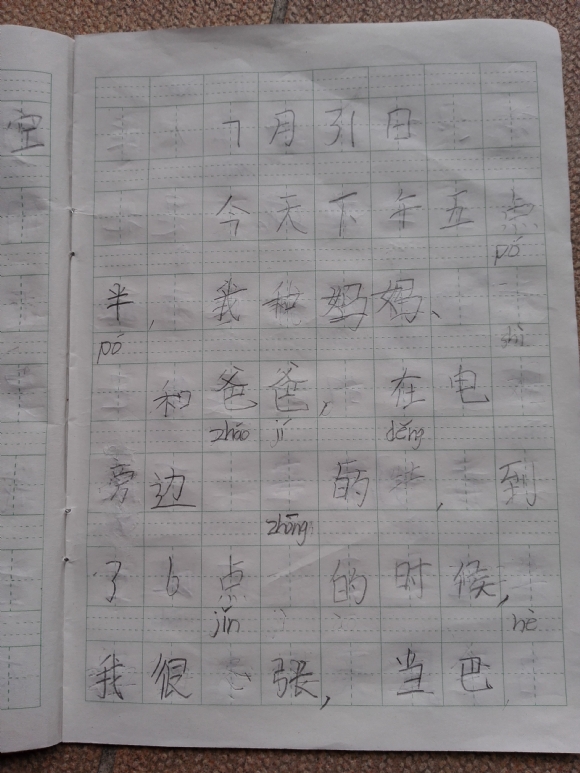 7月31日
今天下午五点
pó
半,我和妈妈、
pó
和爸爸,在电
zháo jí děng
旁边 的 ,到
zhōng
了6点 的时候,
jǐn hè
我很 张,当巴